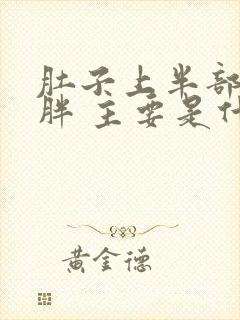 肚子上半部
胖 主要是什
黄金德